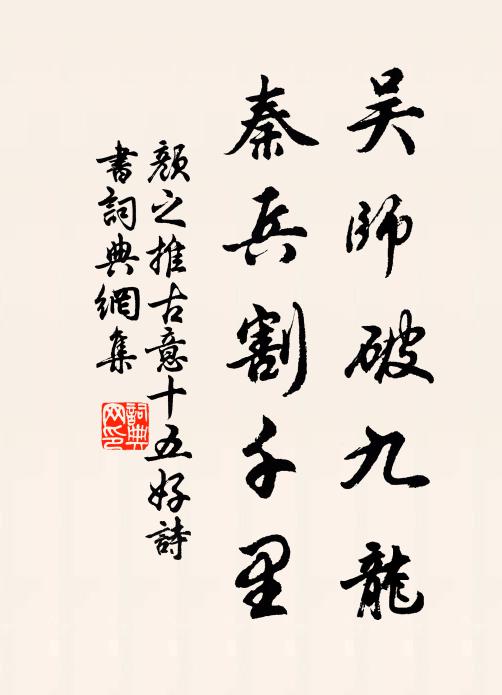 吴師破九龍
秦兵割千里
顔之推古意十五好詩
書詞典網集
詞典
网印